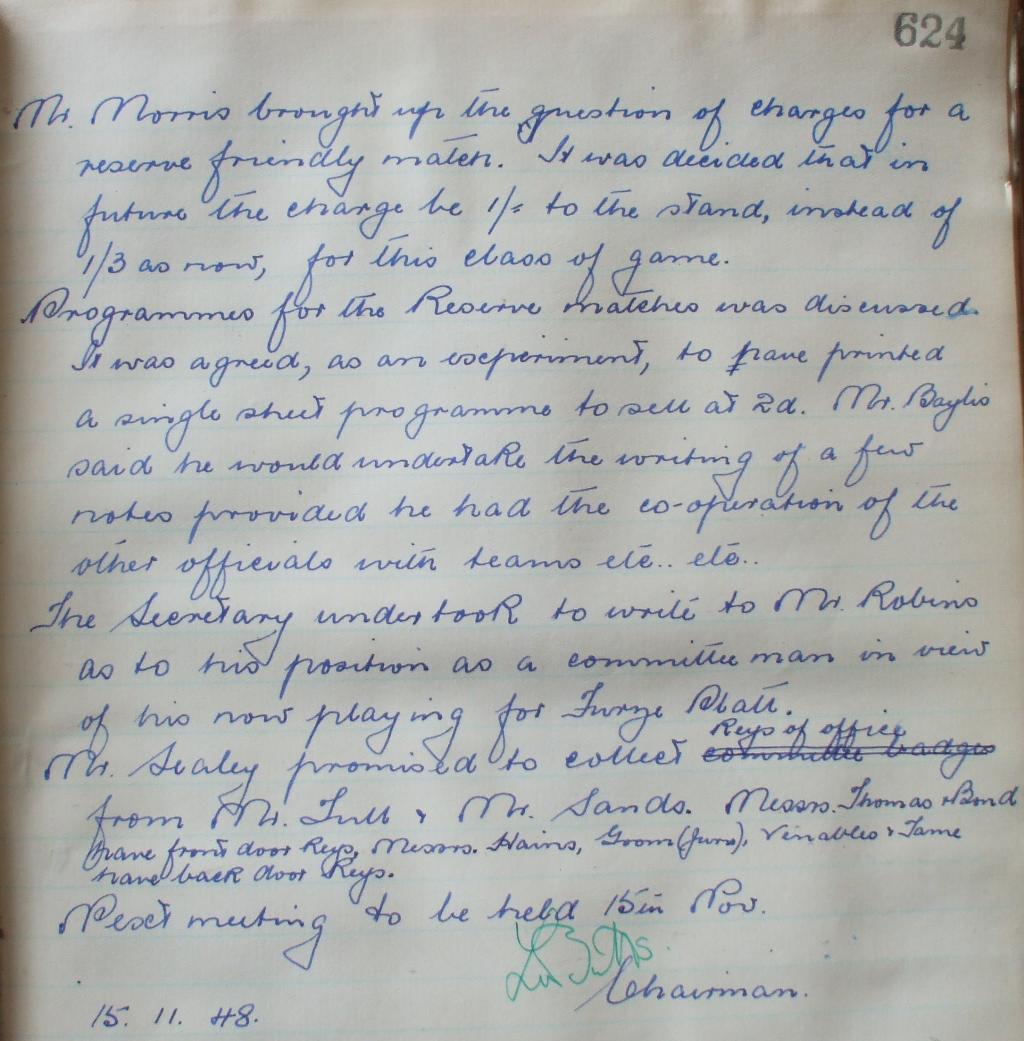 624
Mr. Morris brought up the question of charges for a
reserve friendly match. It was decided that in
future the charge be 1/= to the stand, instead of
1/3 as now, for this class of game.
Programmes for the Reserve matches was discussed.
It was agreed, as an experiment, to have printed
a single sheet programme to sell at 2d. Mr. Baylis
said he would undertake the writing of a few
notes provided he had the co-operation of the
other officials with teams etc.. etc..
The Secretary undertook to write to Mr. Robins
as to his position as a committee man in view
of his now playing for Furze Platt.
Keys of office
Mr. Sealey promised to collect committee badges
from Mr. Tull & Mr. Sands. Messrs. Thomas & Bond
have front door Keys, Messrs. Hains, Groom (Junr), Venables & Tame
have back door Keys.
Next meeting to be held 15th Nov.
Chairman.
15. 11. 48.